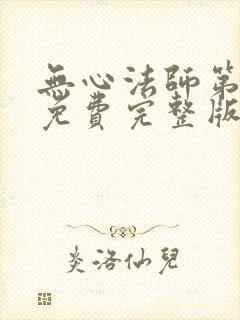 無心法師第
免費完整版
炎洛仙兒